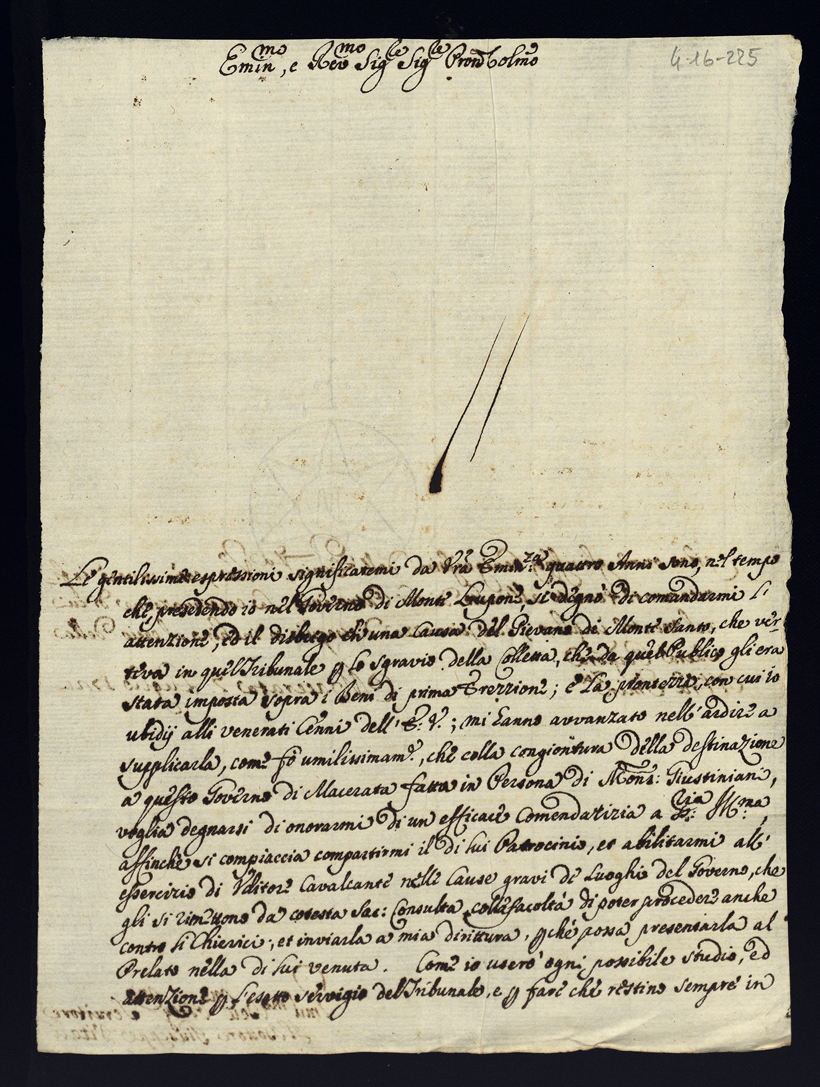 Emin.mo, e Rev.mo Sig.re Sig.re Pron Colmo
4-16-225
Le gentilissime espressioni significatemi da Vra Emin.za quattro Anni sono, nel tempo
che, presedendo io nel Governo di Monte Lupone, si degnò di comandarmi l'
attenzione, ed il disbrigo di una Causa del Pievano di Monte Santo, che ver-
teva in quel Tribunale p lo sgravio della Colletta, che da quel Publico gli era
stata imposta sopra i Beni di prima Erezzione; e la prontezza, con cui io
ubidij alli venerati Cenni dell'E. V.; mi hanno avvanzato nell'ardire a
supplicarla, come fò umilissimam.e, che colla congiontura della destinazione
a questo Governo di Macerata fatta in Persona di Mons: Giustiniani,
voglia degnarsi di onorarmi di un efficace Comendatizia a S: S. Ill:ma,
affinche si compiaccia compartirmi il di lui Patrocinio, et abilitarmi all'
essercizio di Uditore Cavalcante nelle Cause gravi de Luoghi del Governo, che
gli si rimettono da cotesta Sac: Consulta colla facoltà di poter procedere anche
contro li Chierici; et inviarla a mia dirittura, p che possa presentarla al
Prelato nella di lui venuta. Come io userò ogni possibile studio, ed
attenzione p l'esatto servigio del Tribunale, e p fare che restino sempre in